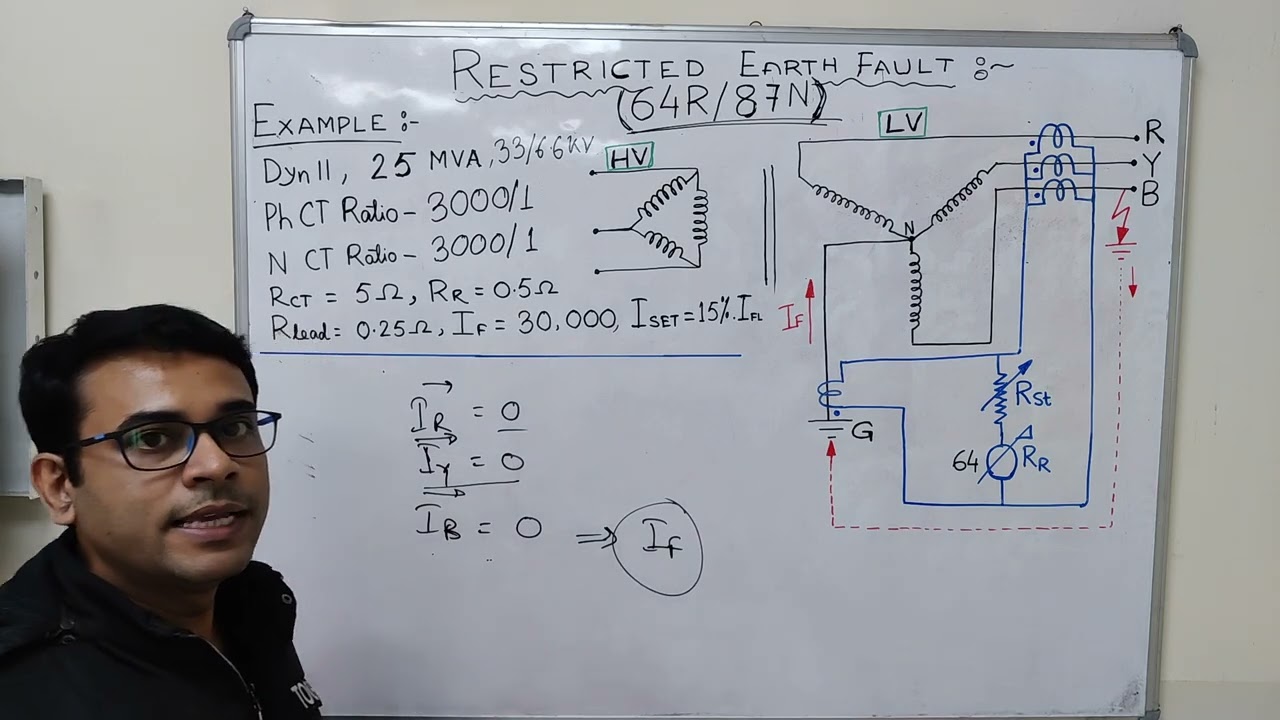 RESTRICTED EARTH FAULT :~
(64R/87N)
EXAMPLE :-
Dyn11, 25 MVA, 33/6.6KV
Ph CT Ratio - 3000/1
N CT Ratio - 3000/1
RCT = 5Ω, RR = 0.5Ω
Rlead = 0.25Ω, IF = 30,000, ISET = 15%.IFL
HV
LV
R
Y
B
N
IF
G
RSt
64
RR
IR = 0
IY = 0
IB = 0 ⇒ IF